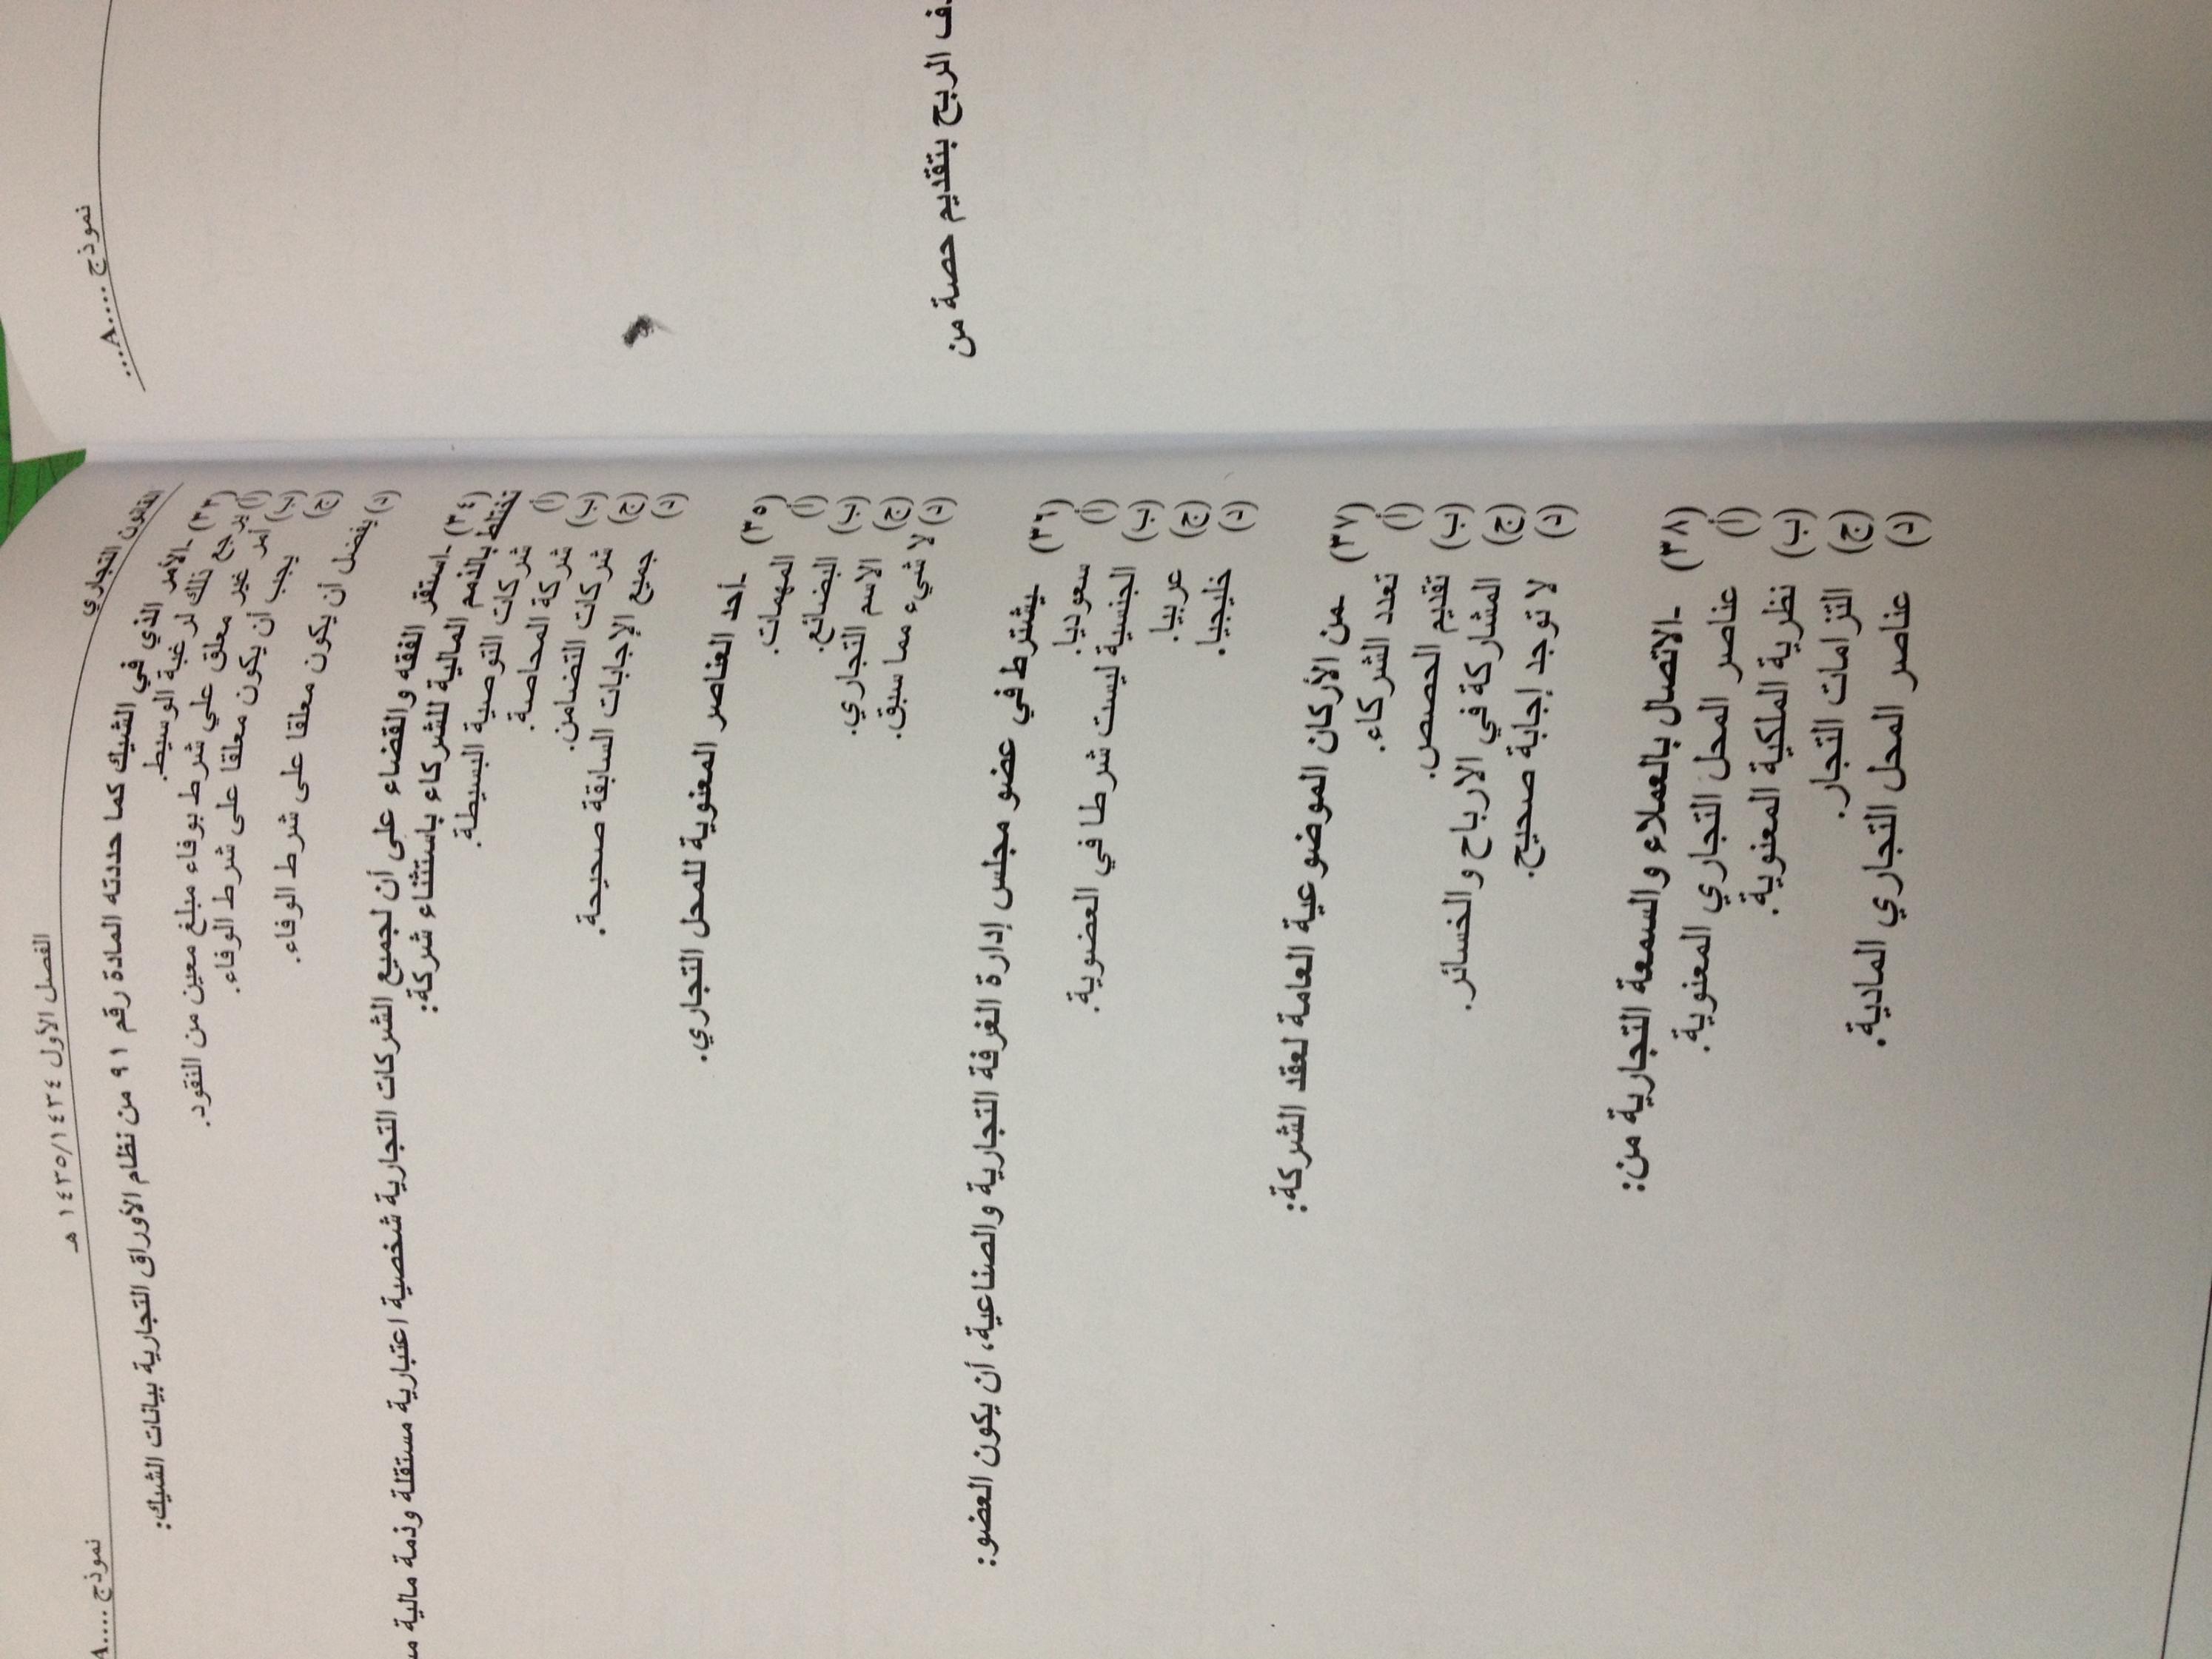 القانون التجاري
الفصل الأول ١٤٣٤/١٤٣٥ هـ
نموذج ....A
(٣٣) -الأمر الذي في الشيك كما حددته المادة رقم ٩١ من نظام الأوراق التجارية بيانات الشيك:
(أ) يرجع ذلك لرغبة الوسيط.
(ب) أمر غير معلق علي شرط بوفاء مبلغ معين من النقود.
(ج) يجب أن يكون معلقا على شرط الوفاء.
(د) يفضل أن يكون معلقا على شرط الوفاء.
(٣٤) -استقر الفقه والقضاء على أن لجميع الشركات التجارية شخصية اعتبارية مستقلة وذمة مالية
تختلط بالذمم المالية للشركاء باستثناء شركة:
(أ) شركات التوصية البسيطة.
(ب) شركة المحاصة.
(ج) شركات التضامن.
(د) جميع الإجابات السابقة صحيحة.
(٣٥) -أحد العناصر المعنوية للمحل التجاري.
(أ) المهمات.
(ب) البضائع.
(ج) الاسم التجاري.
(د) لا شيء مما سبق.
(٣٦) -يشترط في عضو مجلس إدارة الغرفة التجارية والصناعية، أن يكون العضو:
(أ) سعوديا.
(ب) الجنسية ليست شرطا في العضوية.
(ج) عربيا.
(د) خليجيا.
(٣٧) -من الأركان الموضوعية العامة لعقد الشركة:
(أ) تعدد الشركاء.
(ب) تقديم الحصص.
(ج) المشاركة في الارباح والخسائر.
(د) لا توجد إجابة صحيح.
(٣٨) -الاتصال بالعملاء والسمعة التجارية من:
(أ) عناصر المحل التجاري المعنوية.
(ب) نظرية الملكية المعنوية.
(ج) التزامات التجار.
(د) عناصر المحل التجاري المادية.
نموذج ....A...
الربح بتقديم حصة من